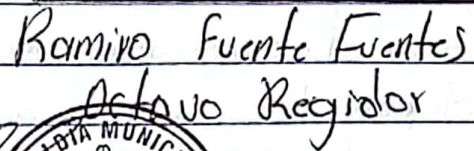 Ramiro Fuente Fuentes
Octavo Regidor
DIA MUNIC